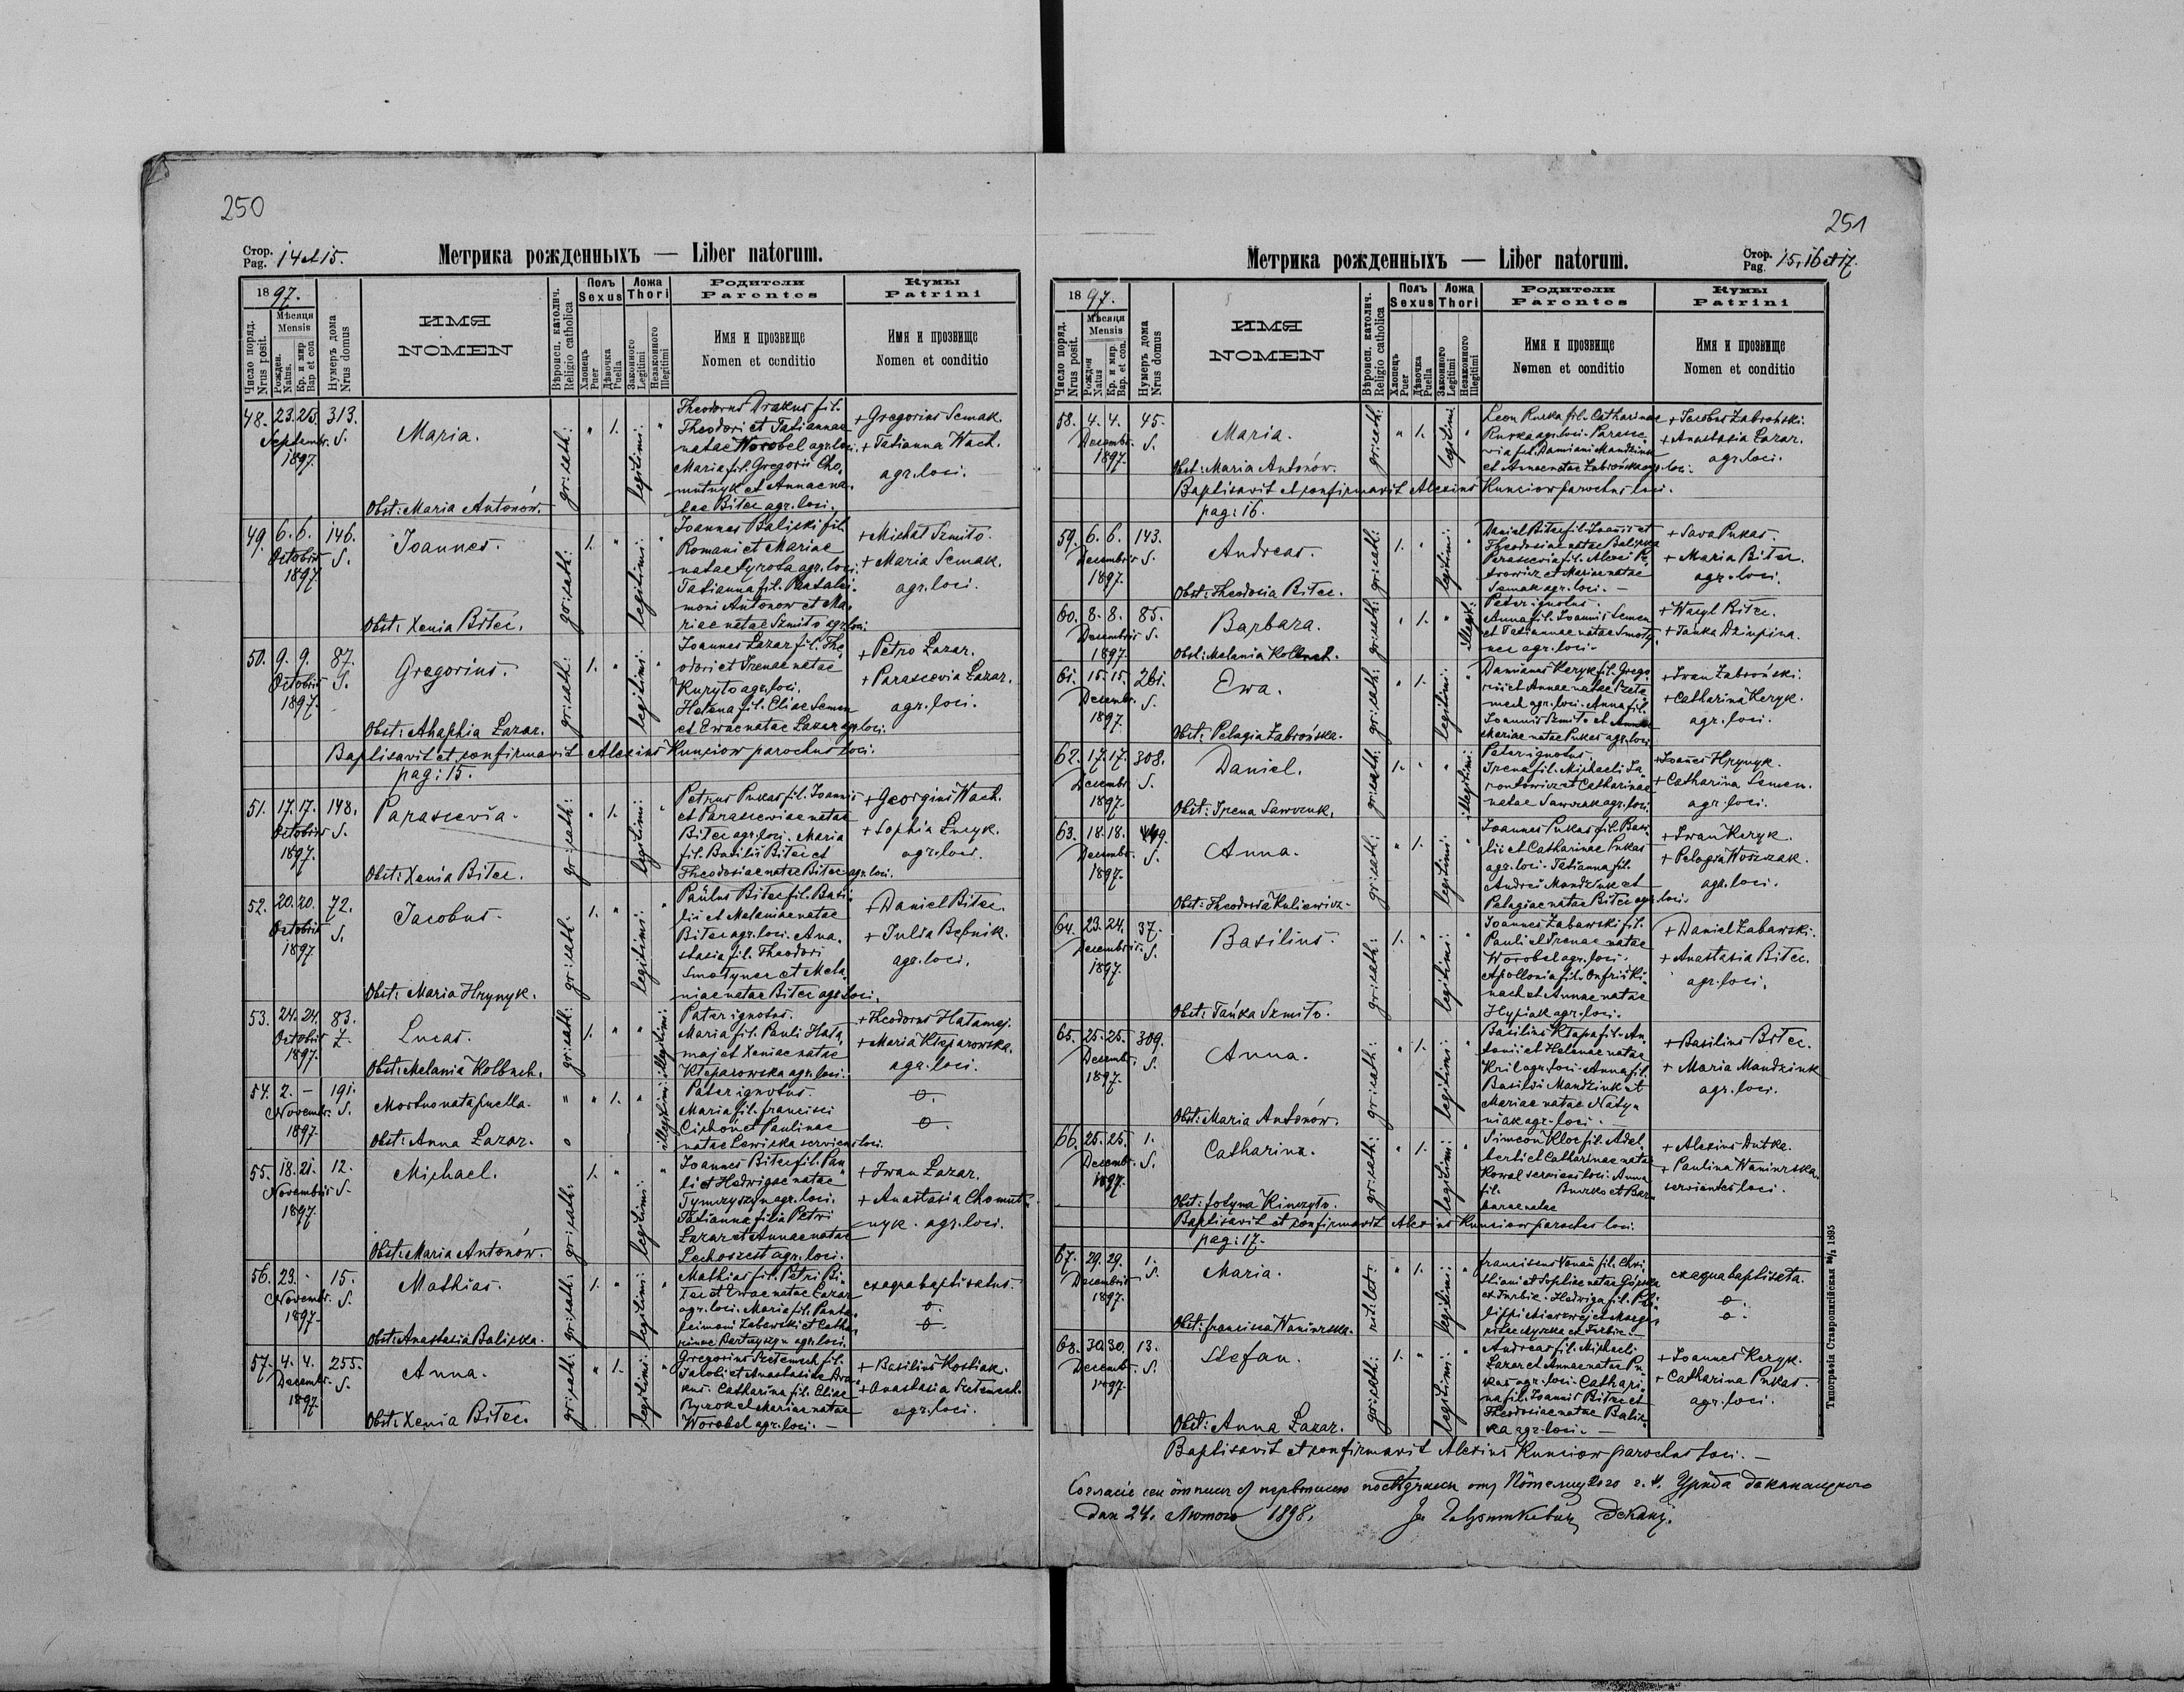 250
Стор. Pag. 14 et 15.
Метрика рожденныхъ — Liber natorum.
1897.
Число поряд. Nrus posit.
Мѣсяця Mensis
Рожден. Natus.
Кр. и мир Bap et con
Нумеръ дома Nrus domus
ИМЯ
NOMEN
Вѣроисп. католич. Religio catholica
Полъ Sexus
Хлопецъ Puer
Дѣвочка Puella
Ложа Thori
Законного Legitimi
Незаконного Illegitimi
Родители
Parentes
Имя и прозвище
Nomen et conditio
Кумы
Patrini
Имя и прозвище
Nomen et conditio
48. 23. 25. 313.
Septembr. S.
1897.
Maria.
Obst: Maria Antonów.
gr: cath:
" 1.
legitimi: "
Theodorus Drakus fil.
Theodori et Tatiannae
natae Worobel agr. loci.
Maria fil. Gregorii Cho,
mutnyk et Annae na,
tae Bitec agr. loci.
+ Gregorius Semak.
+ Tatianna Wach.
agr. loci.
49. 6. 6. 146.
Octobris S.
1897.
Joannes.
Obst: Xenia Bitec.
gr: cath:
1. "
legitimi: "
Joannes Baliski fil.
Romani et Mariae
natae Syrota agr. loci.
Tatianna fil. Pantalei,
moni Antonow et Ma,
riae natae Szmito agr. loci
+ Michał Szmito.
+ Maria Semak.
agr. loci.
50. 9. 9. 87.
Octobris S.
1897.
Gregorius.
Obst: Ahaphia Lazar.
gr: cath:
1. "
legitimi: "
Joannes Lazar fil. The,
odori et Irenae natae
Kuryto agr. loci.
Helena fil. Eliae Semen
et Ewae natae Lazar agr. loci.
+ Petro Lazar.
+ Parascevia Lazar.
agr. loci.
Baptisavit et confirmavit Alexius Kunciow parochus loci.
pag: 15.
51. 17. 17. 148.
Octobris S.
1897.
Parascevia.
Obst: Xenia Bitec.
gr: cath:
" 1.
legitimi: "
Petrus Pukas fil. Joannis
et Parasceviae natae
Bitec agr. loci. Maria
fil. Basilii Bitec et
Theodosiae natae Bitec agr. loci.
+ Georgius Wach.
+ Sophia Lucyk.
agr. loci.
52. 20. 20. 72.
Octobris S.
1897.
Jacobus.
Obst: Maria Hrynyk.
gr: cath.
1. "
legitimi: "
Paulus Bitec fil. Basi,
lii et Melaniae natae
Bitec agr. loci. Ana,
stasia fil. Theodori
Smotynec et Mela,
niae natae Bitec agr. loci.
+ Daniel Bitec.
+ Julia Bębnik.
agr. loci.
53. 24. 24. 83.
Octobris
1897.
Lucas.
Obst: Melania Kolbuch.
gr: cath:
1. " "
illegitimi:
Pater ignotus.
Maria fil. Pauli Hata,
maj et Xeniae natae
Kleparowska agr. loci.
+ Theodorus Hatamaj.
+ Maria Kleparowska.
agr. loci.
54. 2. – 191.
Novembr. S.
1897.
Mortuo nata puella.
Obst: Anna Lazar.
" 1. "
illegitimi:
Pater ignotus.
Maria fil. Francisci
Cichoń et Paulinae
natae Lewicka serviens loci.
0.
0.
55. 18. 21. 12.
Novembris S.
1897.
Michael.
Obst: Maria Antonów.
gr: cath:
1. "
legitimi: "
Joannes Bitec fil. Pau,
li et Hedwigae natae
Tymczyszyn agr. loci.
Tatianna filia Petri
Lazar et Annae natae
Lechoszest agr. loci.
+ Iwan Lazar.
+ Anastasia Chomut,
nyk. agr. loci.
56. 23. - 15.
Novembr. S.
1897.
Mathias.
Obst: Anastasia Baliska.
gr: cath:
1. "
legitimi: "
Mathias fil. Petri Bi,
tec et Ewae natae Lazar
agr. loci. Maria fil. Panta,
leimoni Zabawski et Catha,
rinae agr. loci.
ex aqua baptisatus.
0.
0.
57. 4. 4. 255.
Decembr. S.
1897.
Anna.
Obst: Xenia Bitec.
gr: cath:
" 1.
legitimi: "
Gregorius Szetemech fil.
Jacobi et Anastasiae Dra,
kus. Catharina fil. Eliae
et Mariae natae
Worobel agr. loci. —
+ Basilius Kostiak.
+ Anastasia Szetemech.
agr. loci.
251
Метрика рожденныхъ — Liber natorum.
Стор. Pag. 15, 16 et 17.
1897.
Число поряд. Nrus posit.
Мѣсяця Mensis
Рожден Natus
Кр. и мир. Bap. et con.
Нумеръ дома Nrus domus
ИМЯ
NOMEN
Вѣроисп. католич. Religio catholica
Полъ Sexus
Хлопецъ Puer
Дѣвочка Puella
Ложа Thori
Законного Legitimi
Незаконного Illegitimi
Родители
Parentes
Имя и прозвище
Nomen et conditio
Кумы
Patrini
Имя и прозвище
Nomen et conditio
58. 4. 4. 45.
Decembr. S.
1897.
Maria.
Obst: Maria Antonów.
gr: cath:
" 1.
legitimi: "
Leon Ruska fil. Catharinae
Ruska agr. loci. Parasce,
via fil. Damiani Mandziuk
et Annae natae Zabrońska agr. loci.
+ Jacobus Zabroński.
+ Anastasia Lazar.
agr. loci.
Baptisavit et confirmavit Alexius Kunciow parochus loci.
pag: 16.
59. 6. 6. 143.
Decembris S.
1897.
Andreas.
Obst: Theodosia Bitec.
gr: cath:
1. "
legitimi: "
Daniel Bitec fil. Joannis et
Theodosiae natae Baliska
Parascevia fil. Alexii Pe,
trowicz et Mariae natae
Semak agr. loci. —
+ Sava Pukas.
+ Maria Bitec.
agr. loci.
60. 8. 8. 85.
Decembris S.
1897.
Barbara.
Obst: Melania Kolbuch.
gr: cath:
" 1. "
illegit:
Pater ignotus.
Anna fil. Joannis Semen
et Tatiannae natae Smoty,
nec agr. loci.
+ Wasyl Bitec.
+ Tańka
61. 15. 15. 261.
Decembr. S.
1897.
Ewa.
Obst: Pelagia Zabrońska.
gr: cath:
" 1.
legitimi: "
Damianus Keryk fil. Grego
rii et Annae natae Szete,
mech agr. loci. Anna fil.
Joannis Szmito et
Mariae natae Pukas agr. loci.
+ Iwan Zabroński.
+ Catharina Keryk.
agr. loci.
62. 17. 17. 308.
Decembr. S.
1897.
Daniel.
Obst: Irena Sawczuk.
gr: cath:
1. " "
illegitimi:
Pater ignotus.
Irena fil. Michaeli
et Catharinae
natae Sawczak agr. loci.
+ Joañes Hrynyk.
+ Catharina Semen.
agr. loci.
63. 18. 18.
Decembr. S.
1897.
Anna.
Obst: Theodosia Kulicwicz.
gr: cath:
" 1.
legitimi: "
Joannes Pukas fil. Basi,
lii et Catharinae Pukas
agr. loci. Tatianna fil.
Andreii Mandziuk et
Pelagiae natae Bitec agr. loci.
+ Iwan Keryk.
+ Pelagia Woszczak.
agr. loci.
64. 23. 24. 37.
Decembris. S.
1897.
Basilius.
Obst: Tańka Szmito.
gr: cath:
1. "
legitimi: "
Joannes Zabawski fil.
Pauli et Irenae natae
Worobel agr. loci.
Apollonia fil. Onfrii Ki,
nach et Annae natae
agr. loci.
+ Daniel Zabawski.
+ Anastasia Bitec.
agr. loci.
65. 25. 25. 309.
Decembr. S.
1897.
Anna.
Obst: Maria Antonów.
gr: cath:
" 1.
legitimi: "
Basilius Kłapa fil. An,
tonii et Helenae natae
Kril agr. loci. Anna fil.
Basilii Mandziuk et
Mariae natae Naty,
niak agr. loci. —
+ Basilius Bitec.
+ Maria Mandziuk
agr. loci.
66. 25. 25. 1.
Decembr. S.
1897.
Catharina.
Obst: Fotyna Kinczyto.
gr: cath:
" 1.
legitimi: "
Simeon Kloc fil. Adal,
berti et Catharinae natae
Kowal serviens loci. Anna
fil. Burko et Bar,
barae natae
+ Alexius Dutka.
+ Paulina Waniurska
servientes loci.
Baptisavit et confirmavit Alexius Kunciow parochus loci.
pag: 17.
67. 29. 29. 1.
Decembris S.
1897.
Maria.
Obst: Francisca Waniurska.
rit: lat:
" 1.
legitimi: "
Franciscus fil. Chri,
stiani et Sophiae natae Górska
ex Hedwiga fil. Phi,
lippi et Marga,
ritae
ex aqua baptisata.
0.
0.
68. 30. 30. 13.
Decembr. S.
1897.
Stefan.
Obst: Anna Lazar.
gr: cath:
1. "
legitimi: "
Andreas fil. Michaeli
Lazar et Annae natae Pu,
kas agr. loci. Cathari,
na fil. Joannis Bitec et
Theodosiae natae Balis,
ka agr. loci. —
+ Joannes Keryk.
+ Catharina Pukas.
agr. loci.
Baptisavit et confirmavit Alexius Kunciow parochus loci. —
дня 24. Лютого 1898.
Деканъ.
Типографія Ставропигійская 1895